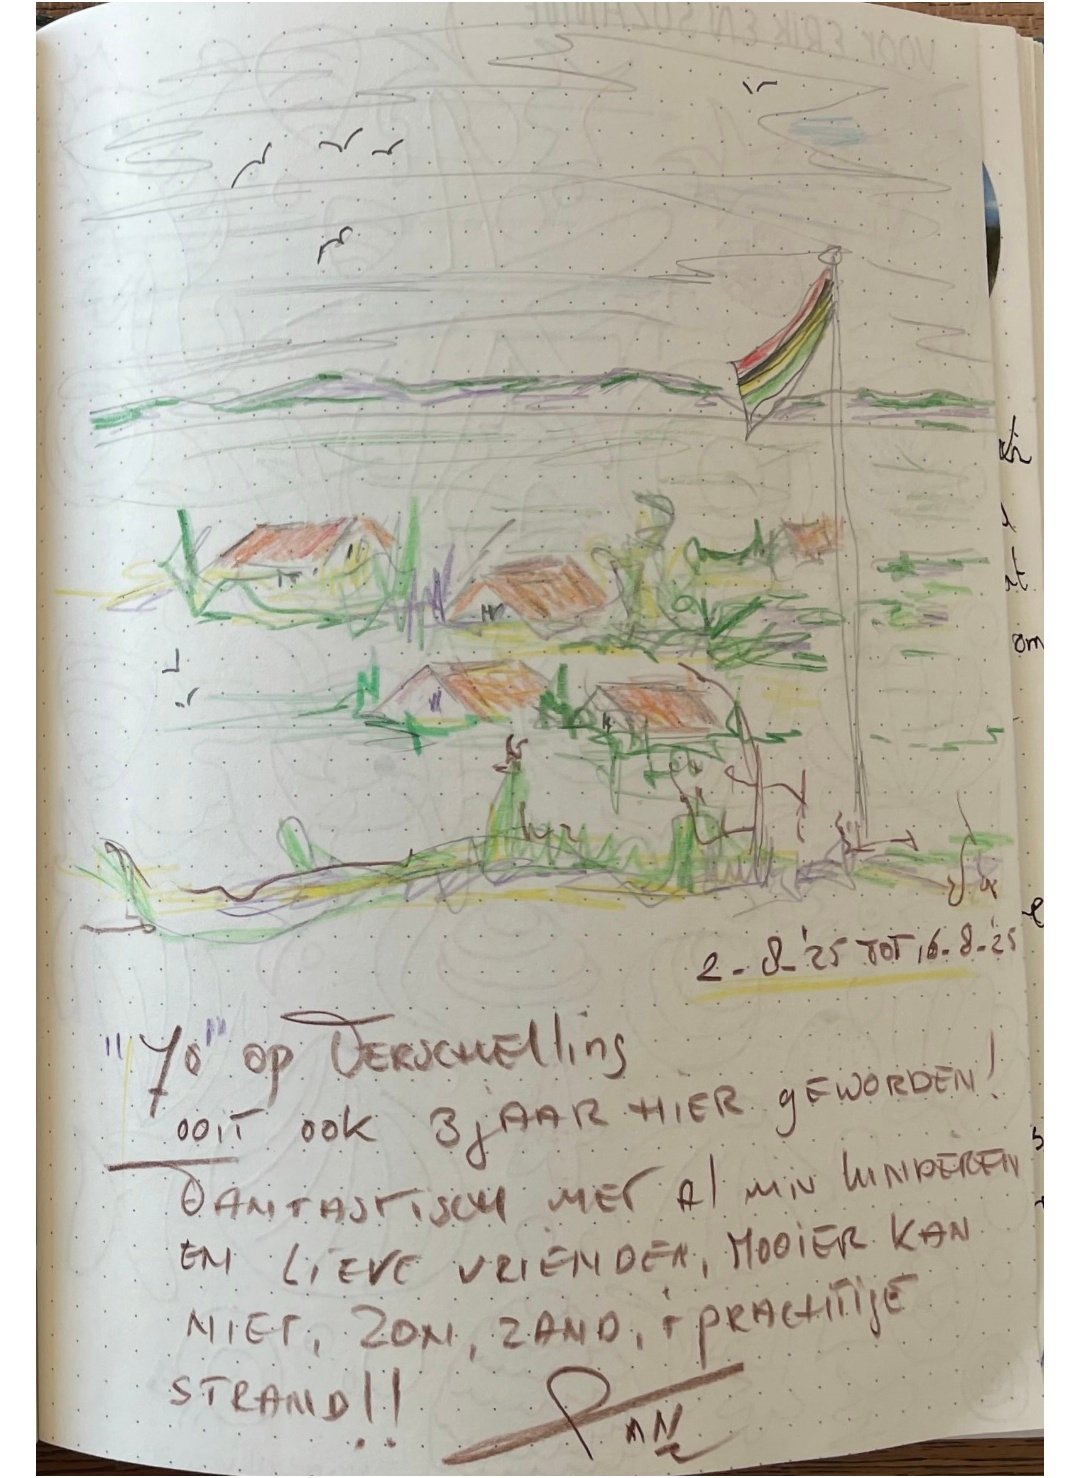 2-8-'25 TOT 16-8-'25
"70" op TERSCHElling
ooit ook 3 jAAR HIER gEWORDEN!
FANTASTISCH MET Al MIJN KINDEREN
EN LIEVE VRIENDEN, MOOIER KAN
NIET, ZON, ZAND, + PRACHTIgE
STRAND!!
om